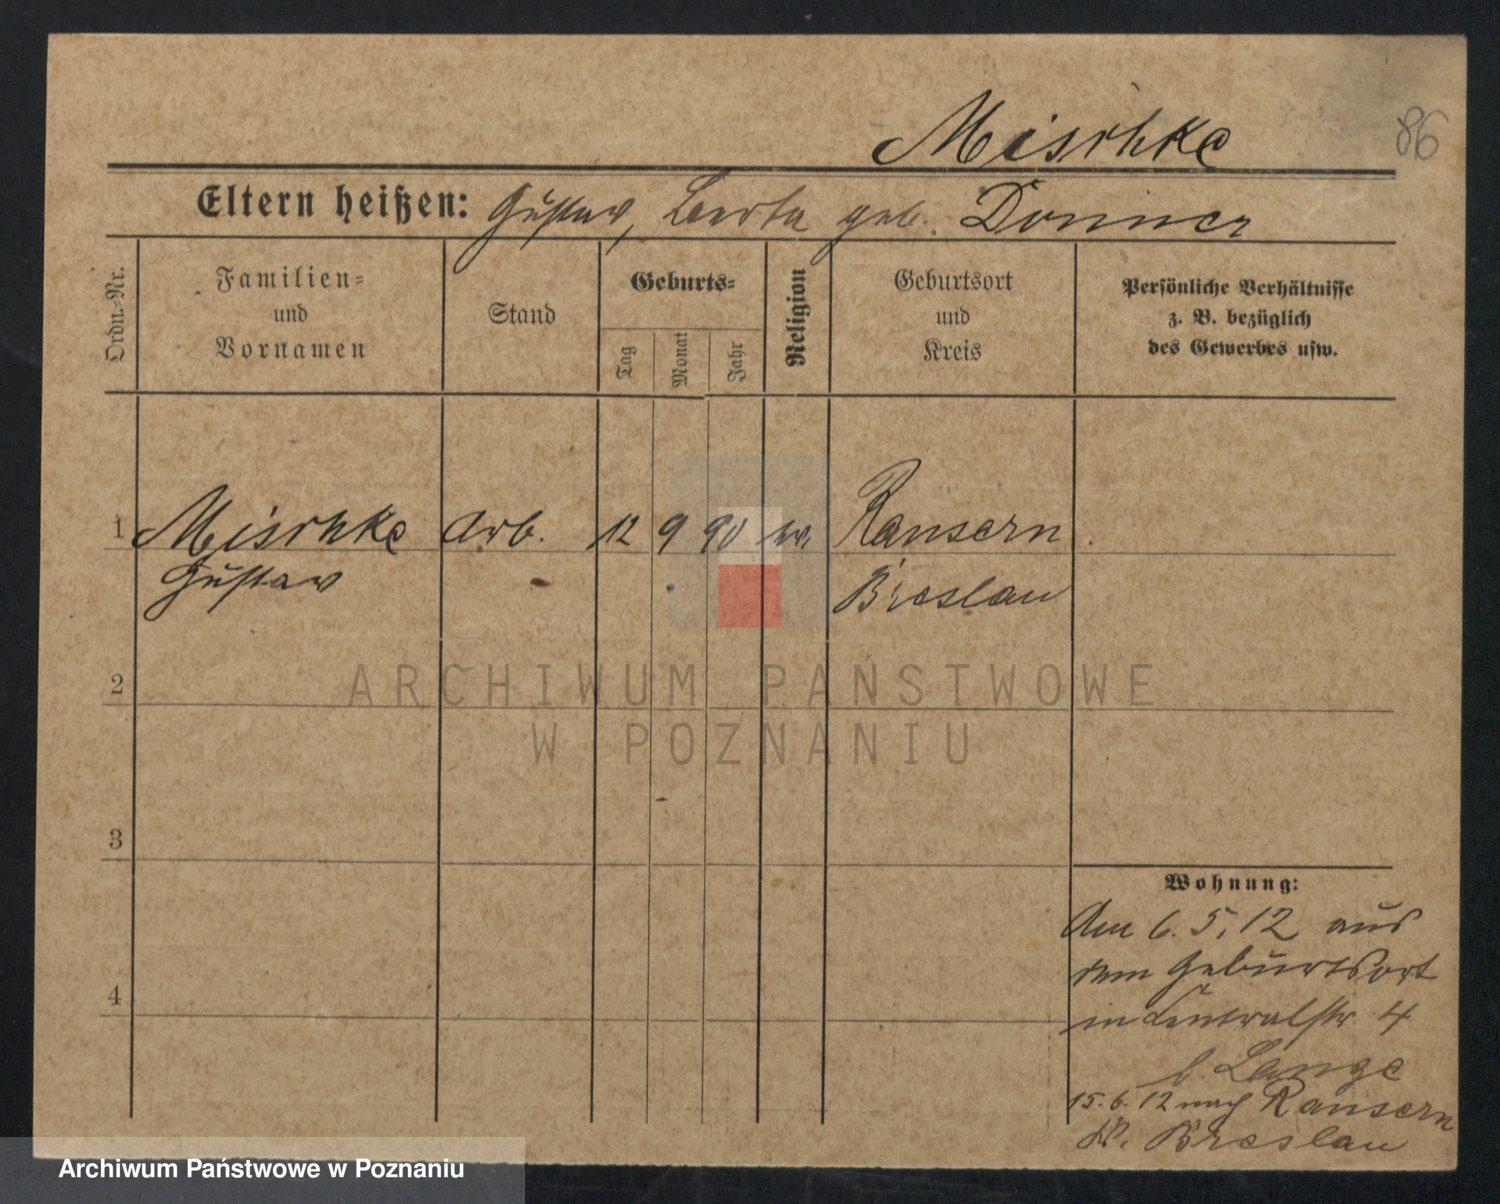 Mischke
86
Eltern heißen: Gustav, Berta geb. Donner
Ordn.-Nr.
Familien=
und
Vornamen
Stand
Geburts=
Tag
Monat
Jahr
Religion
Geburtsort
und
Kreis
Persönliche Verhältnisse
z. B. bezüglich
des Gewerbes usw.
1 Mischke Arb. 12 9 90 ev. Ransern
Gustav Breslau
2
ARCHIWUM PAŃSTWOWE
W POZNANIU
3
Wohnung:
Am 6.5.12 aus
dem Geburtsort
4
in Centralstr. 4
b. Lange
15.6.12 nach Ransern
Kr. Breslau
Archiwum Państwowe w Poznaniu